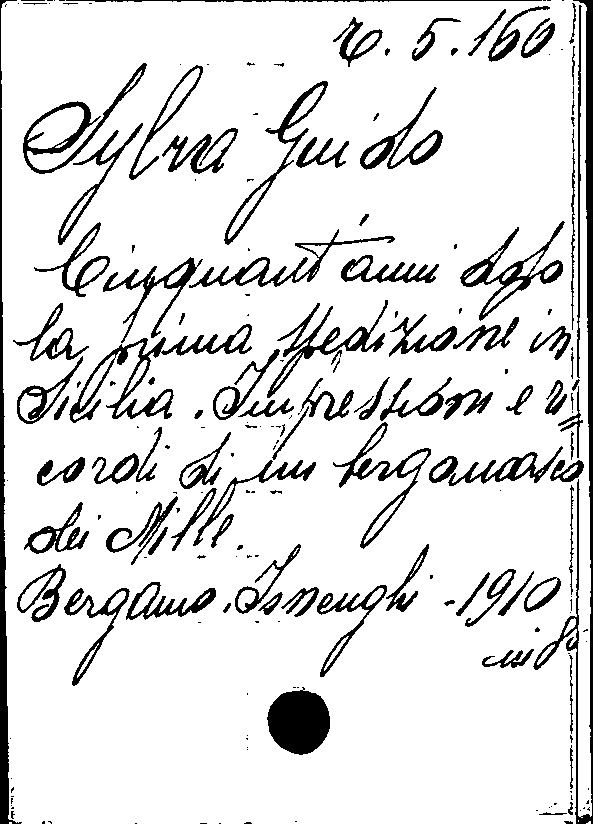 R. 5. 160
Sylva Guido
Cinquant'anni dopo
la prima spedizione in
Sicilia. Impressioni e ri=
cordi di un bergamasco
dei Mille.
Bergamo. Isnenghi - 1910
in 8°